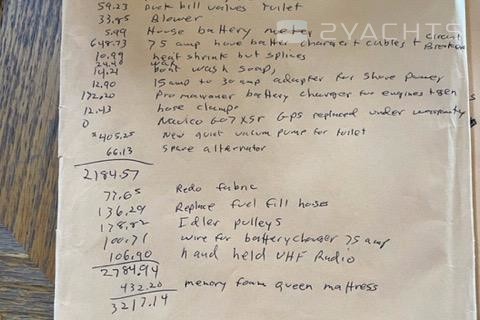 2YACHTS
59.23 Duck bill valves toilet
33.85 Blower
5.99 House battery meter
648.73 75 amp house batter charger + cables + circuit Breaker
10.99 heat shrink but splices
24.40 wax
14.21 boat wash soap,
12.90 15 amp to 30 amp adapter for shore power
172.20 Promariner battery charger for engines + gen
12.43 hose clamps
0 Navico GO7 XSR GPS replaced under warranty
405.25 New quiet vacum pump for toilet
66.13 spare alternator
2184.57
77.65 Redo fabric
136.29 Replace fuel fill hoses
178.82 Idler pulleys
100.71 wire for battery charger 75 amp
106.90 hand held VHF Radio
2784.94
432.20 memory foam queen mattress
3217.14